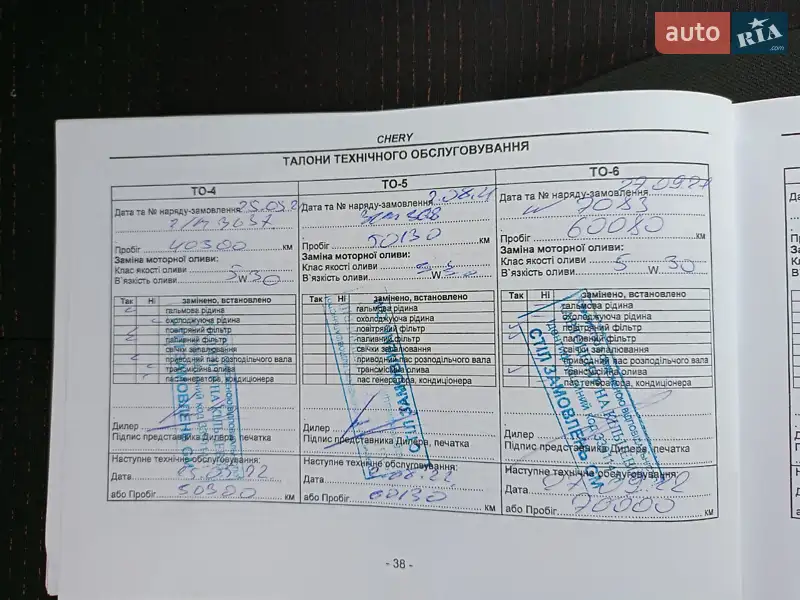 auto RIA .com
CHERY
ТАЛОНИ ТЕХНІЧНОГО ОБСЛУГОВУВАННЯ
ТО-4
Дата та № наряду-замовлення
3637
Пробіг 40300 км
Заміна моторної оливи:
Клас якості оливи
В`язкість оливи 5 W 30
Так Ні замінено, встановлено
гальмова рідина
охолоджуюча рідина
повітряний фільтр
паливний фільтр
свічки запалювання
приводний пас розподільчого вала
трансмісійна олива
пас генератора, кондиціонера
Дилер
Підпис представника Дилера, печатка
Наступне технічне обслуговування:
Дата
або Пробіг 50300 км
ТО-5
Дата та № наряду-замовлення
Пробіг 50130 км
Заміна моторної оливи:
Клас якості оливи
В`язкість оливи W
Так Ні замінено, встановлено
гальмова рідина
охолоджуюча рідина
повітряний фільтр
паливний фільтр
свічки запалювання
приводний пас розподільчого вала
трансмісійна олива
пас генератора, кондиціонера
Дилер
Підпис представника Дилера, печатка
Наступне технічне обслуговування:
Дата
або Пробіг 60130 км
ТО-6
Дата та № наряду-замовлення
Пробіг 60080 км
Заміна моторної оливи:
Клас якості оливи
В`язкість оливи 5 W 30
Так Ні замінено, встановлено
гальмова рідина
охолоджуюча рідина
повітряний фільтр
паливний фільтр
свічки запалювання
приводний пас розподільчого вала
трансмісійна олива
пас генератора, кондиціонера
СТІЛ ЗАМОВЛЕНЬ
Дилер
Підпис представника Дилера, печатка
Наступне технічне обслуговування:
Дата
або Пробіг 70000 км
- 38 -